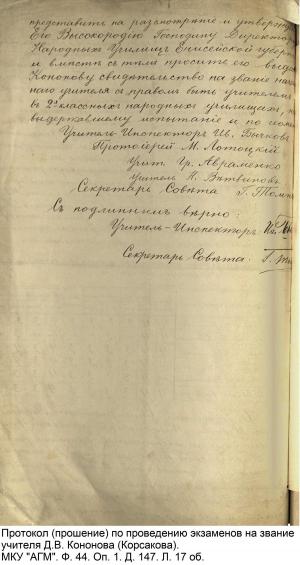 представить на разсмотрѣніе и утвержд
Его Высокородію Господину Директор
Народныхъ Училищъ Енисейской губерн
и вмѣстѣ съ тѣмъ просить его выдат
Кононову свидѣтельство на званіе нача
наго учителя съ правомъ быть учителемъ
въ 2х классныхъ народныхъ училищахъ, к
выдержавшему испытаніе и по
Учитель-Инспекторъ Ив. Бычковъ
Протоіерей М. Лотоцкій
Учит. Гр. Авраменко
Учитель Н. Вятвиновъ
Секретарь Совѣта Г. Томи
Съ подлиннымъ вѣрно:
Учитель-Инспекторъ Ив.
Секретарь Совѣта: Г.
Протокол (прошение) по проведению экзаменов на звание
учителя Д.В. Кононова (Корсакова).
МКУ "АГМ". Ф. 44. Оп. 1. Д. 147. Л. 17 об.